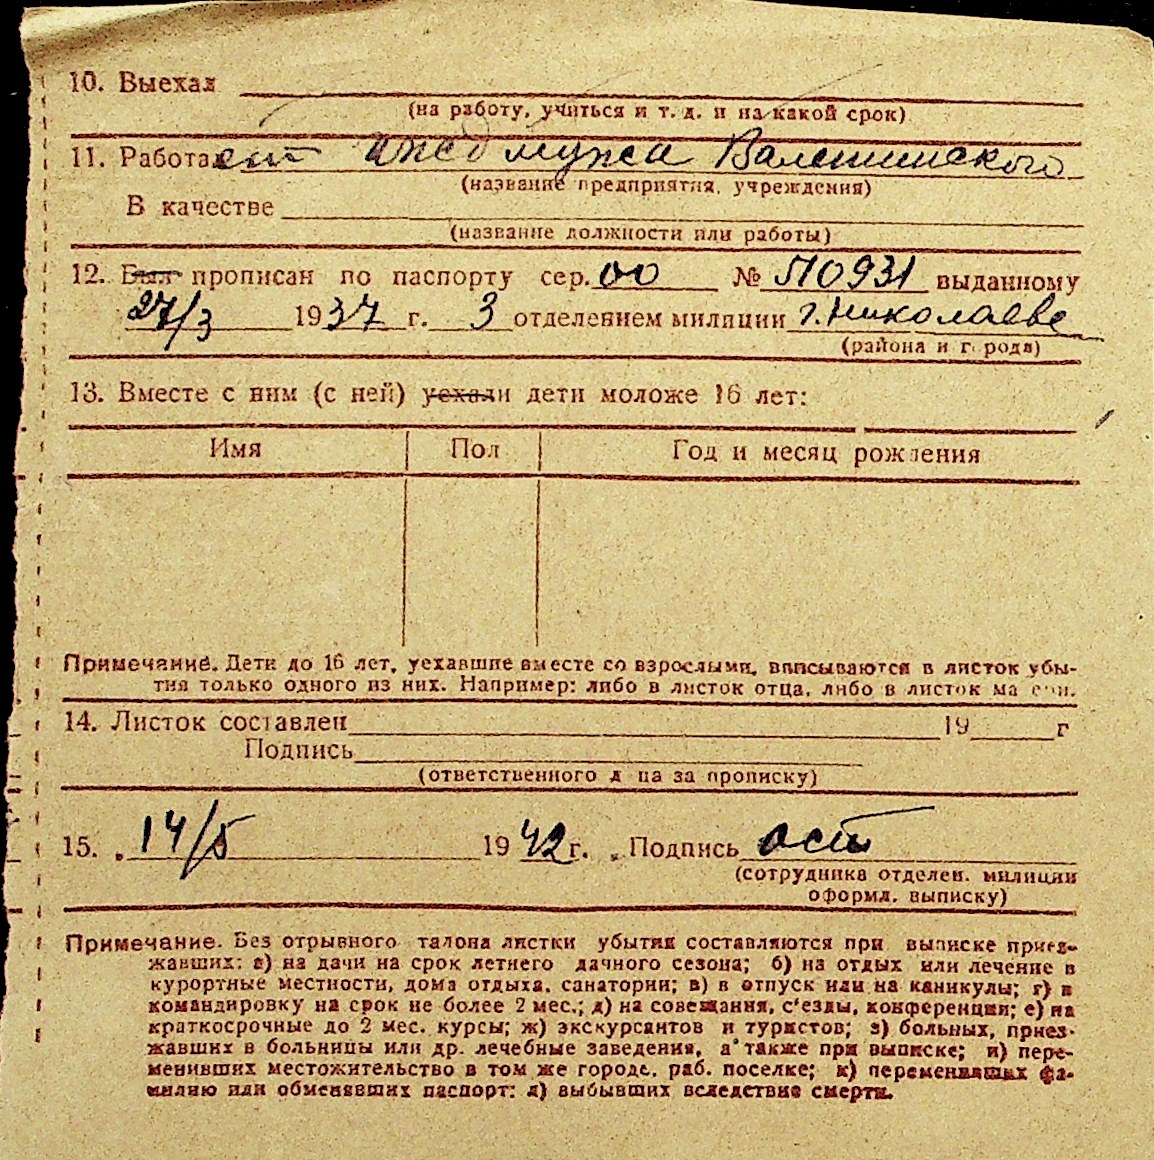 10. Выехал
(на работу, учиться и т. д. и на какой срок)
11. Работает ижд мужа
(название предприятия, учреждения)
В качестве
(название должности или работы)
12. Был прописан по паспорту сер. 00 № 510931 выданному
27/3 1937 г. 3 отделением милиции г. Николаеве
(района и города)
13. Вместе с ним (с ней) уехали дети моложе 16 лет:
Имя Пол Год и месяц рождения
Примечание. Дети до 16 лет, уехавшие вместе со взрослыми, вписываются в листок убы-
тия только одного из них. Например: либо в листок отца, либо в листок матери.
14. Листок составлен 19 г
Подпись
(ответственного лица за прописку)
15. 14/5 1942 г. Подпись
(сотрудника отделен. милиции
оформл. выписку)
Примечание. Без отрывного талона листки убытия составляются при выписке приез-
жавших: а) на дачи на срок летнего дачного сезона; б) на отдых или лечение в
курортные местности, дома отдыха, санатории; в) в отпуск или на каникулы; г) в
командировку на срок не более 2 мес.; д) на совещания, с'езды, конференции; е) на
краткосрочные до 2 мес. курсы; ж) экскурсантов и туристов; з) больных, приез-
жавших в больницы или др. лечебные заведения, а также при выписке; и) пере-
менивших местожительство в том же городе, раб. поселке; к) переменивших фа-
милию или обменявших паспорт; л) выбывших вследствие смерти.